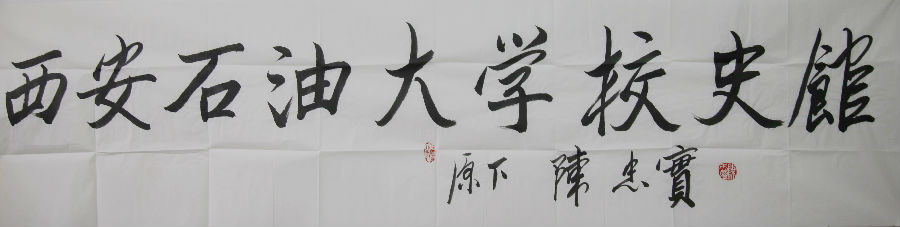 西安石油大学校史館
原下 陳忠實